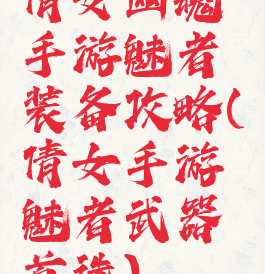 倩女幽魂
手游魅者
装备攻略(
倩女手游
魅者武器
首选)